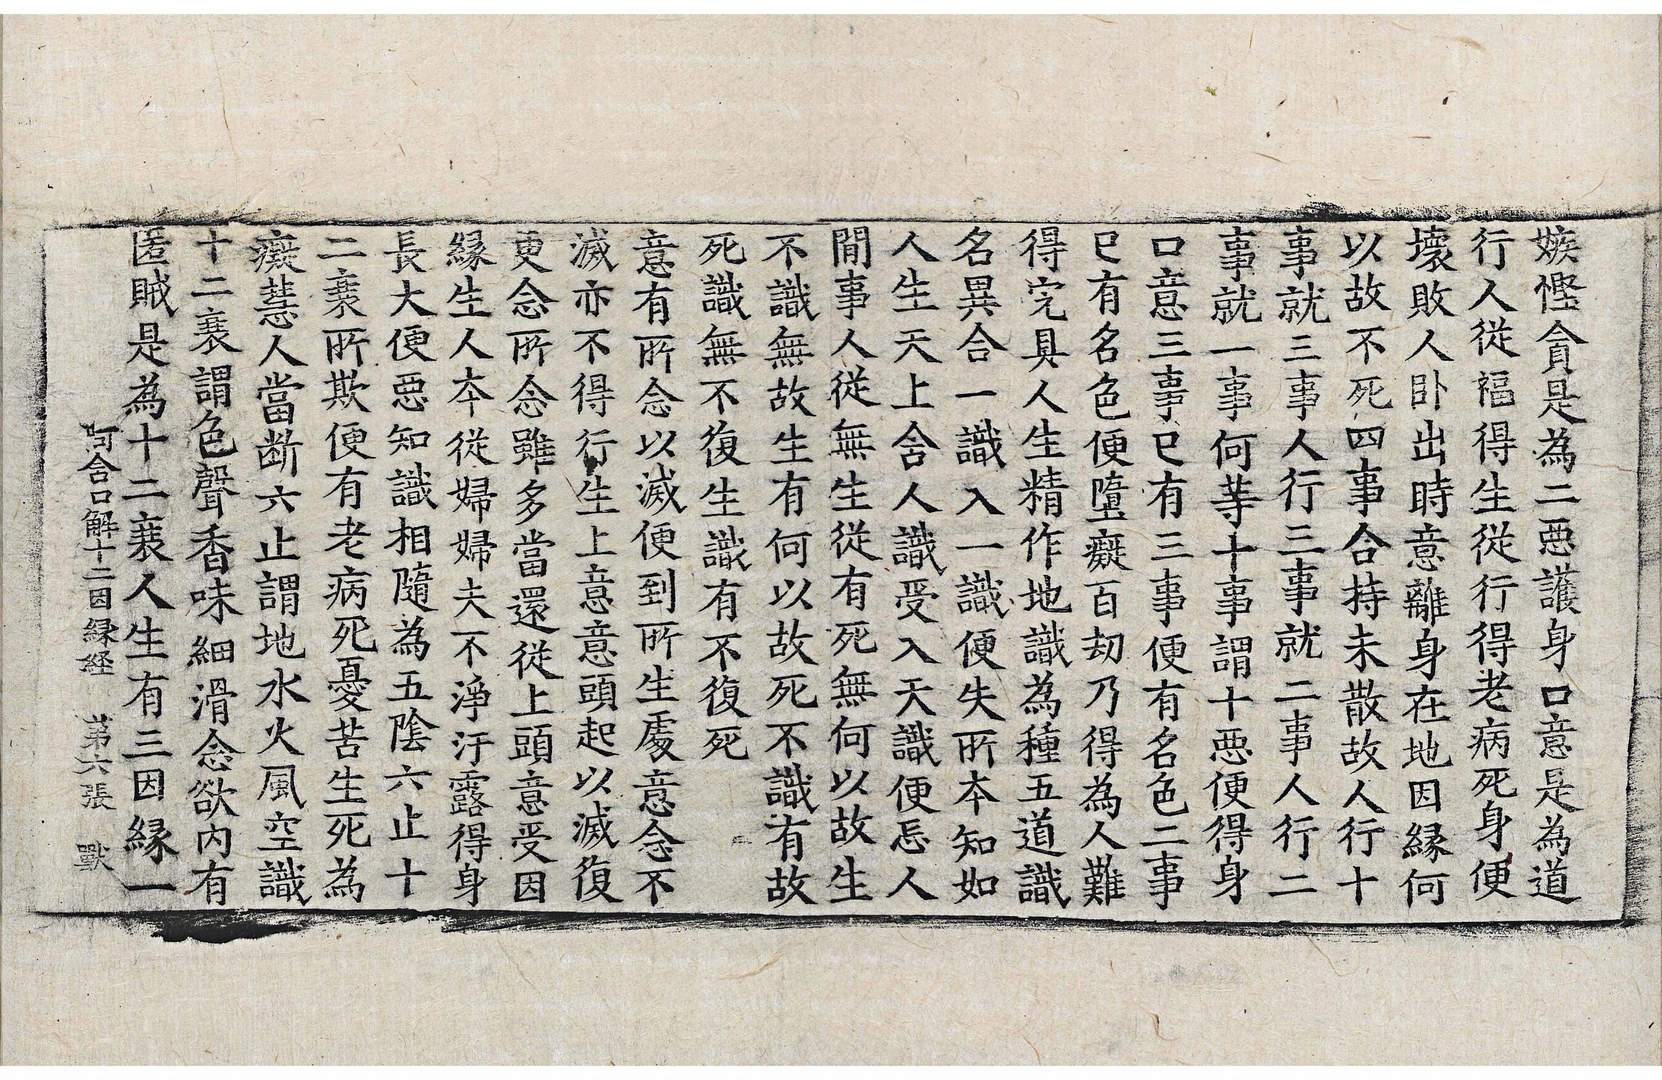 嫉慳貪是為二惡護身口意是為道
行人從福得生從行得老病死身便
壞敗人臥出時意離身在地因緣何
以故不死四事合持未散故人行十
事就三事人行三事就二事人行二
事就一事何等十事謂十惡便得身
口意三事已有三事便有名色二事
已有名色便墮癡百劫乃得為人難
得完具人生精作地識為種五道識
名異合一識入一識便失所本知如
人生天上舍人識受入天識便忘人
閒事人從無生從有死無何以故生
不識無故生有何以故死不識有故
死識無不復生識有不復死
意有所念以滅便到所生處意念不
滅亦不得行生上意意頭起以滅復
更念所念雖多當還從上頭意受因
緣生人本從婦婦夫不淨汙露得身
長大便惡知識相隨為五陰六止十
二衰所欺便有老病死憂苦生死為
癡慧人當斷六止謂地水火風空識
十二衰謂色聲香味細滑念欲內有
匿賊是為十二衰人生有三因緣一
阿含口解十二因緣経　第六張　獸